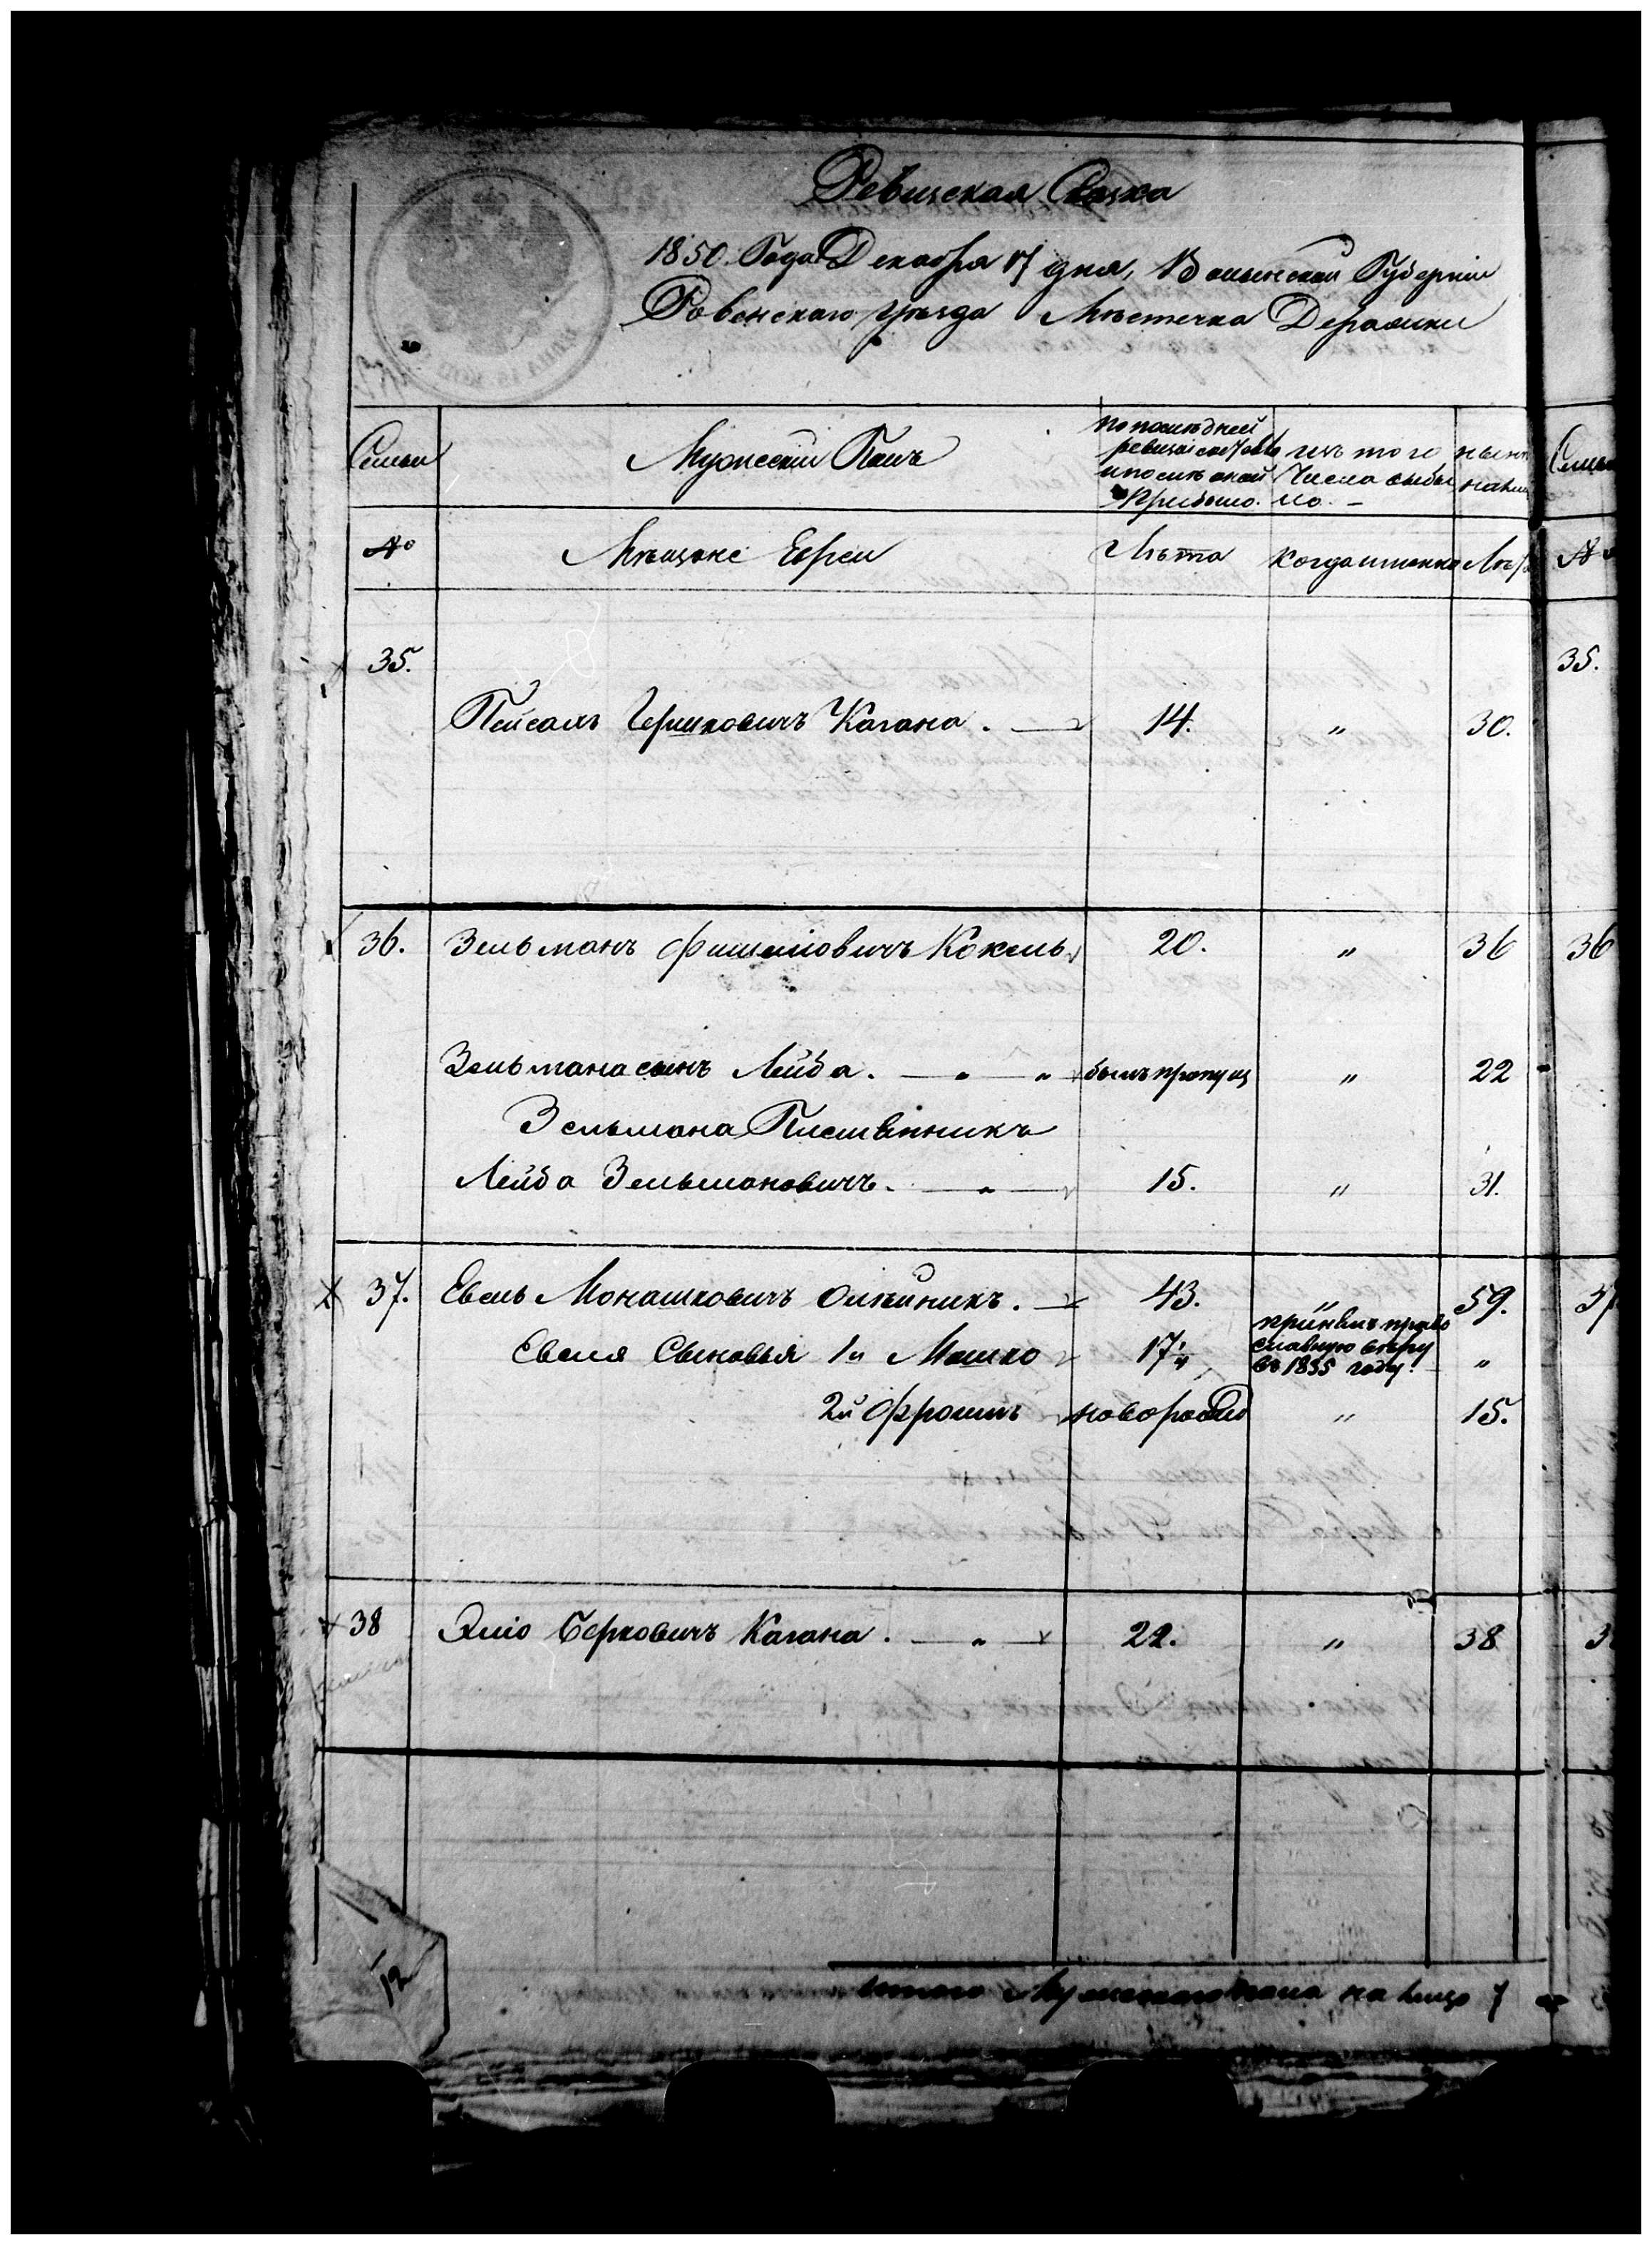 Ревизская Сказка
1850 Года Декабря 17 дня, Волынской Губерніи
Ровенскаго уѣзда Мѣстечка Деражни
Семьи
Мужескій Полъ
по послѣдней ревизіи состояло и послѣ оной прибыло.
изъ того числа выбыло. –
нынѣ налицо
Семьи
№
Мѣщане Евреи
Лѣта
когда именно
Лѣта
№
35.
35.
Пейсахъ Гершковичъ Кагана. 14. " 30.
36. Зельманъ Фишелиовичъ Кокель 20. " 36 36
Зельмана сынъ Лейба. " " былъ пропущ " 22
Зельмана Племянникъ
Лейба Зельмановичъ. " 15. " 31.
37. Евель Монашковичъ Олѣйникъ. 43. " 59. 37
Евеля Сыновья 1й Мошко 17½ принялъ православную вѣру въ 1835 году. "
2й Фроимъ новорожд " 15.
38 Элio Берковичъ Кагана. " 22. " 38 3
12
итого Мужескаго пола на лицо 7